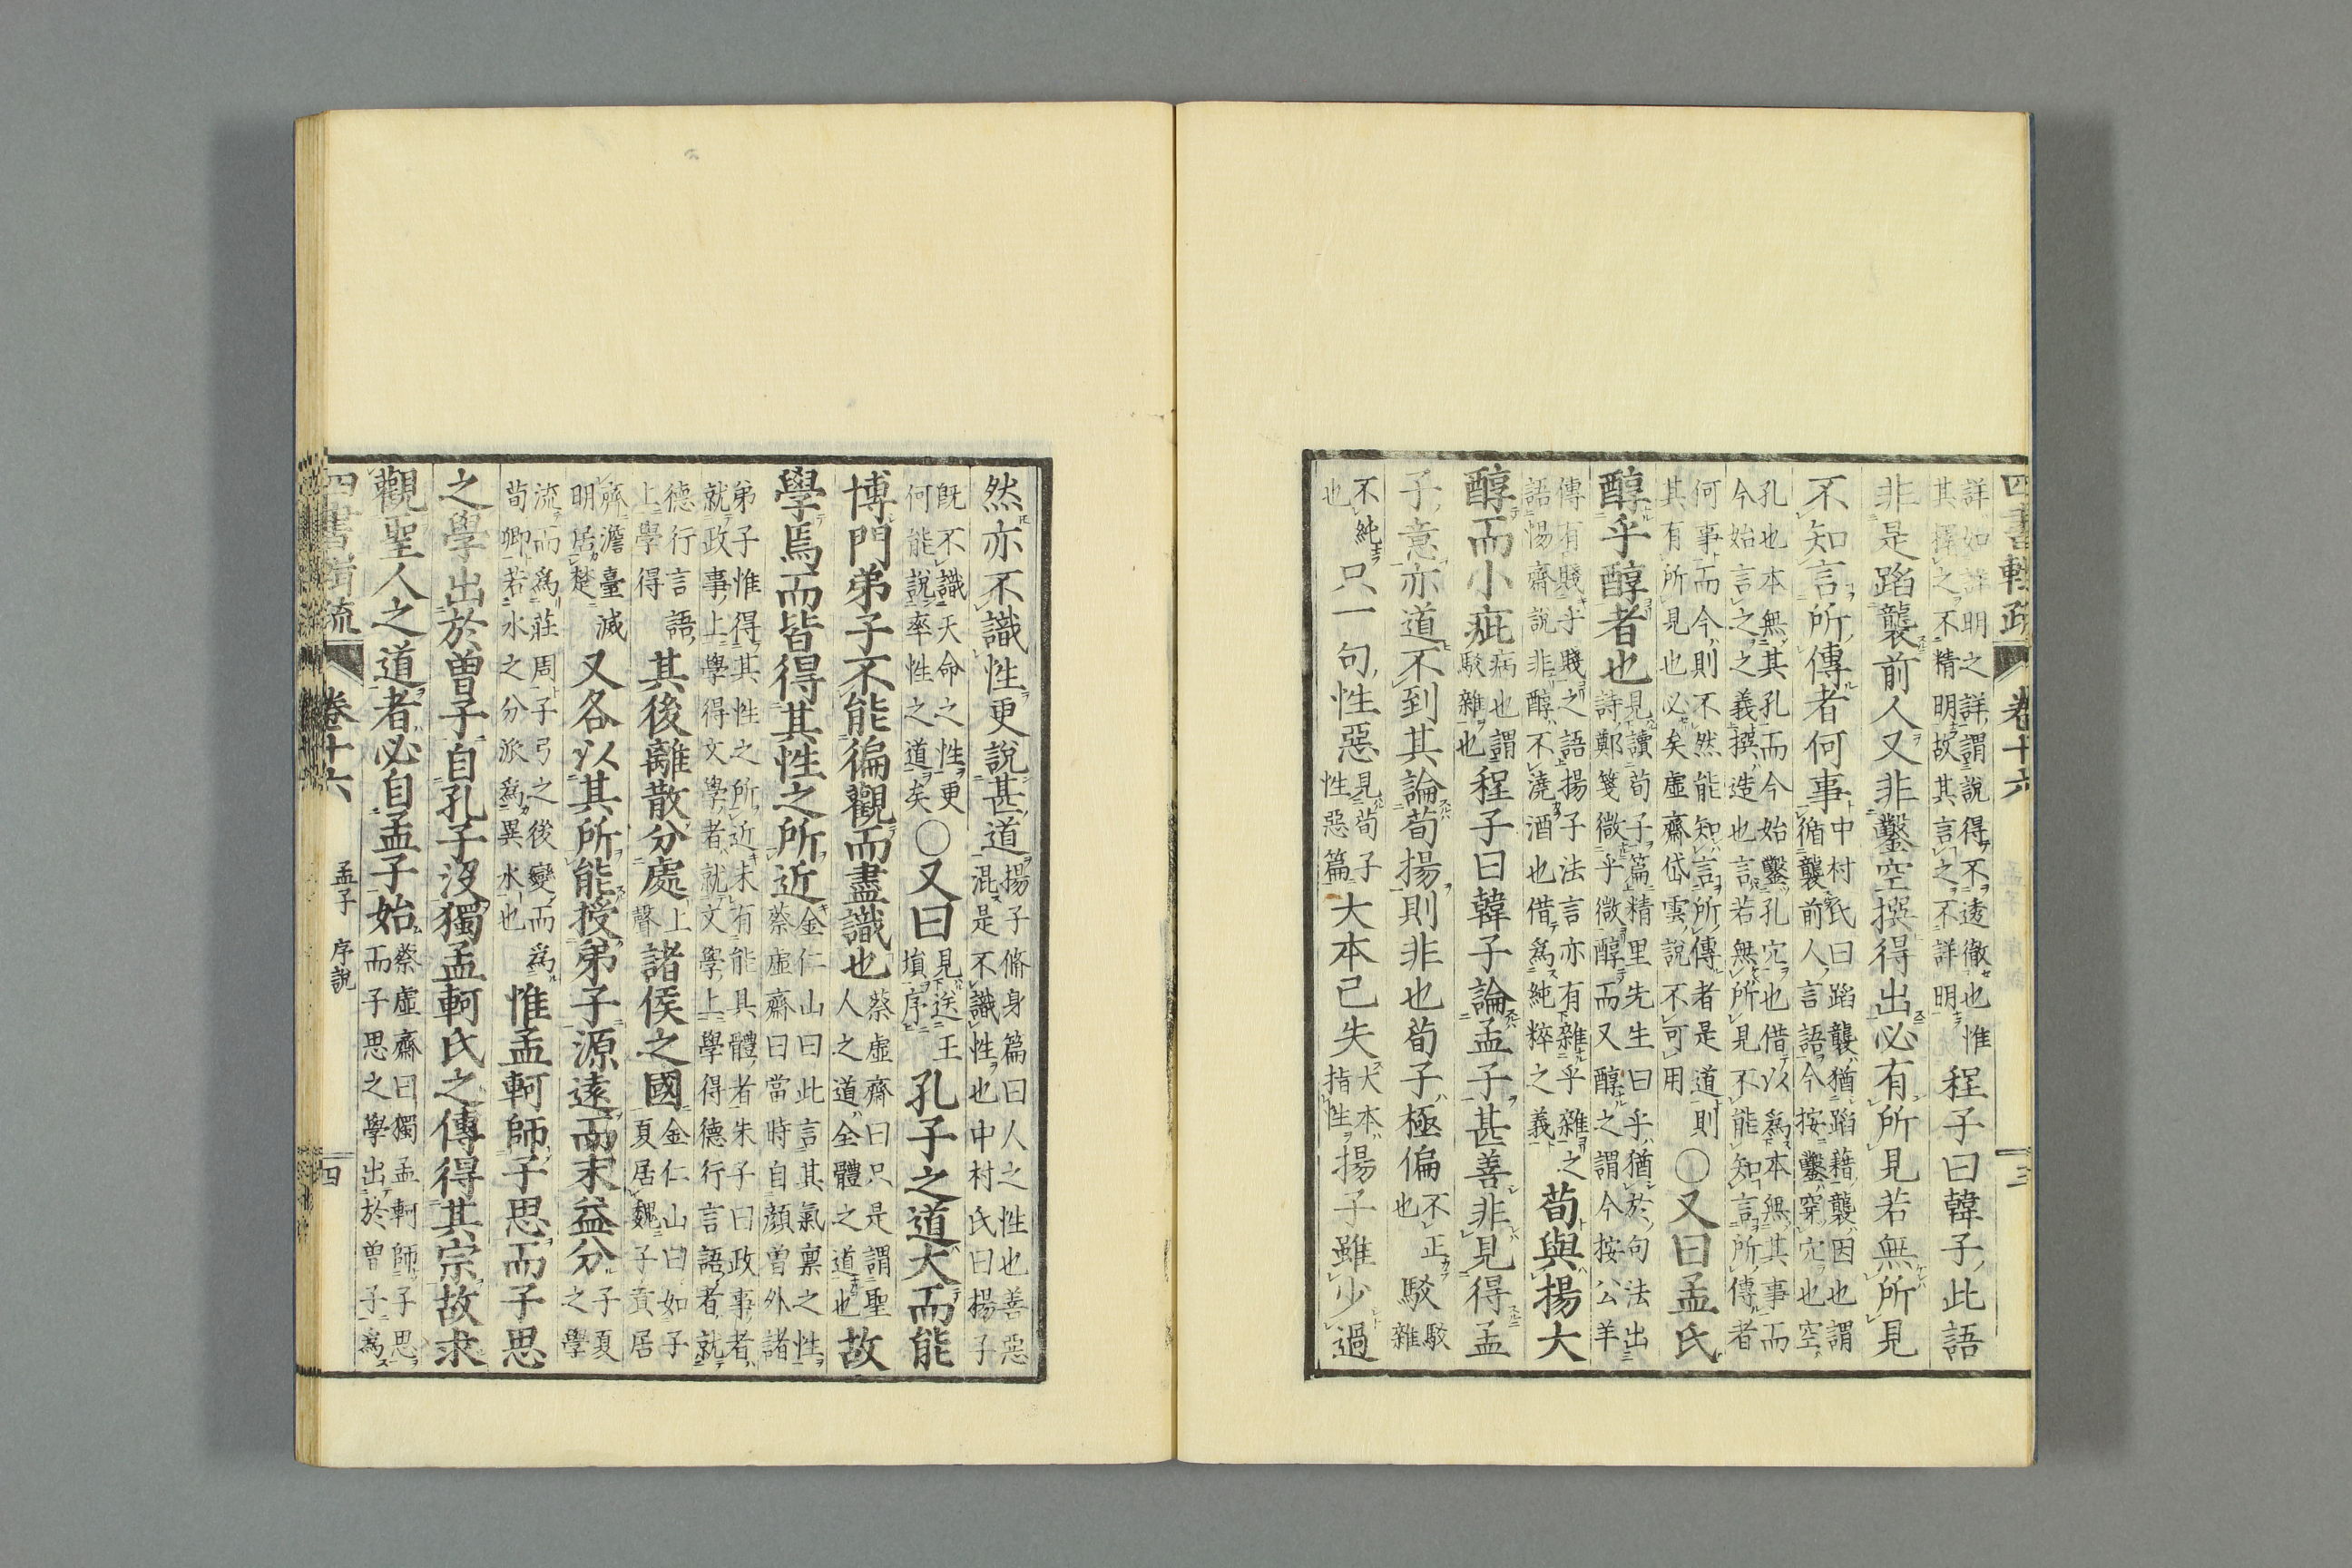 四書輯疏 卷十六 三
詳如詳明之詳謂說得不透徹也惟
其擇之不精明故其言之不詳明
程子曰韓子此語
非是蹈襲前人又非鑿空撰得出必有所見若無所見
不知言所傳者何事
中村氏曰蹈襲猶蹈藉襲因也謂
循襲前人言語今按鑿穿穴也空
孔也本無其孔而今始鑿孔穴也借以爲本無其事而
今始言之之義撰造也言若無所見不能知言所傳者
何事而今則不然能知言所傳者是道則
其有所見也必矣虛齋岱雲說不可用
○又曰孟氏
醇乎醇者也
見讀荀子篇精里先生曰乎猶於句法出
詩鄭箋微乎微醇而又醇之謂今按公羊
傳有賤乎賤之語揚子法言亦有雜乎雜之
語惕齋說非醇不澆酒也借爲純粹之義
荀與揚大
醇而小疵
病也謂
駁雜也
程子曰韓子論孟子甚善非見得孟
子意亦道不到其論荀揚則非也荀子極偏
不正
也
駁
駁
雜
不純
也
只一句性惡
見荀子
性惡篇
大本已失
大本
指性
揚子雖少過
然亦不識性更說甚道
揚子脩身篇曰人之性也善惡
混是不識性也中村氏曰揚子
既不識天命之性更
何能說率性之道矣
○又曰
見送王
塤序
孔子之道大而能
博門弟子不能徧觀而盡識也
蔡虛齋曰只是謂聖
人之道全體之道也
故
學焉而皆得其性之所近
金仁山曰此言其氣稟之性
蔡虛齋曰當時自顏曾外諸
弟子惟得其性之所近未有能具體者朱子曰政事者
就政事上學得文學者就文學上學得德行言語者就
德行言語
上學得
其後離散分處
上
聲
諸侯之國
金仁山曰如子
夏居魏子貢居
齊澹臺滅
明居楚
又各以其所能授弟子源遠而末益分
子夏
之學
流而爲莊周子弓之後變而爲
荀卿若水之分派爲異水也
惟孟軻師子思而子思
之學出於曾子自孔子沒獨孟軻氏之傳得其宗故求
觀聖人之道者必自孟子始
蔡虛齋曰獨孟軻師子思
而子思之學出於曾子爲
四書輯疏 卷十六 孟子 序說 四